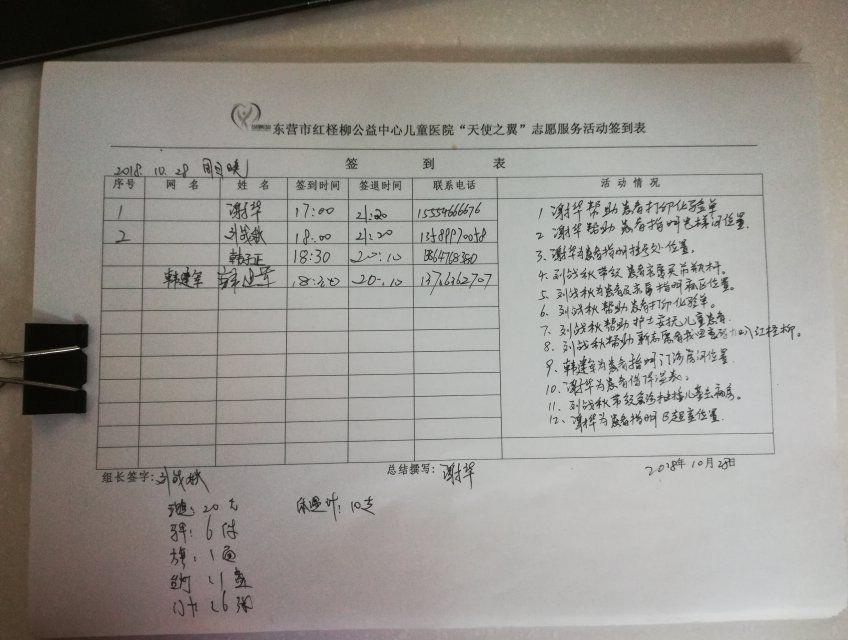 东营市红柽柳公益中心儿童医院“天使之翼”志愿服务活动签到表
签 到 表
2018.10.28
序号 网 名 姓 名 签到时间 签退时间 联系电话 活 动 情 况
1 谢华 17:00 21:20 15554666676
2 刘战秋 18:00 21:20
韩子正 18:30 20:10
韩建军 韩建军 18:30 20:10
1 谢华帮助患者打印化验单
2 谢华帮助患者指明 位置
3、谢华为患者指明挂号处位置。
4、刘战秋带领患者家属买 。
5、刘战秋为患者及家属指明 位置。
6、刘战秋帮助患者打印化验单。
7、刘战秋帮助护士安抚儿童患者
8、刘战秋帮助新志愿者 红柽柳。
9、韩建军为患者指明门诊房间位置
10、谢华为患者借体温表。
11、刘战秋带领 儿童去病房。
12、谢华为患者指明B超室位置
组长签字:刘战秋 总结撰写:谢华 2018年10月28日
20元 体温计:10支
6件
旗:1面